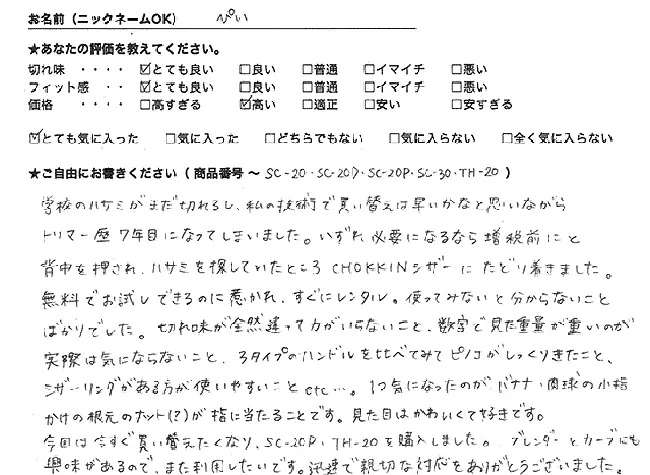 お名前（ニックネームOK） ぴい
★あなたの評価を教えてください。
切れ味 ・・・・ ☑とても良い □良い □普通 □イマイチ □悪い
フィット感 ・・・・ ☑とても良い □良い □普通 □イマイチ □悪い
価格 ・・・・ □高すぎる ☑高い □適正 □安い □安すぎる
☑とても気に入った □気に入った □どちらでもない □気に入らない □全く気に入らない
★ご自由にお書きください（商品番号～ SC-20・SC-20D・SC-20P・SC-30・TH-20 ）
学校のハサミがまだ切れるし、私の技術で買い替えは早いかなと思いながら
トリマー歴7年目になってしまいました。いずれ必要になるなら増税前にと
背中を押され、ハサミを探していたところ CHOKKINシザーにたどり着きました。
無料でお試しできるのに惹かれ、すぐにレンタル。使ってみないと分からないこと
ばかりでした。切れ味が全然違って力がいらないこと、数字で見た重量が重いのが
実際は気にならないこと、3タイプのハンドルを比べてみてピノコがしっくりきたこと、
シザーリングがある方が使いやすいこと etc…。1つ気になったのがバナナ・肉球の小指
かけの根元のナット(?)が指に当たることです。見た目はかわいくて好きです。
今回は今すぐ買い替えたくなり、SC-20P・TH-20を購入しました。ブレンダーとカーブにも
興味があるので、また利用したいです。迅速で親切な対応をありがとうございました。